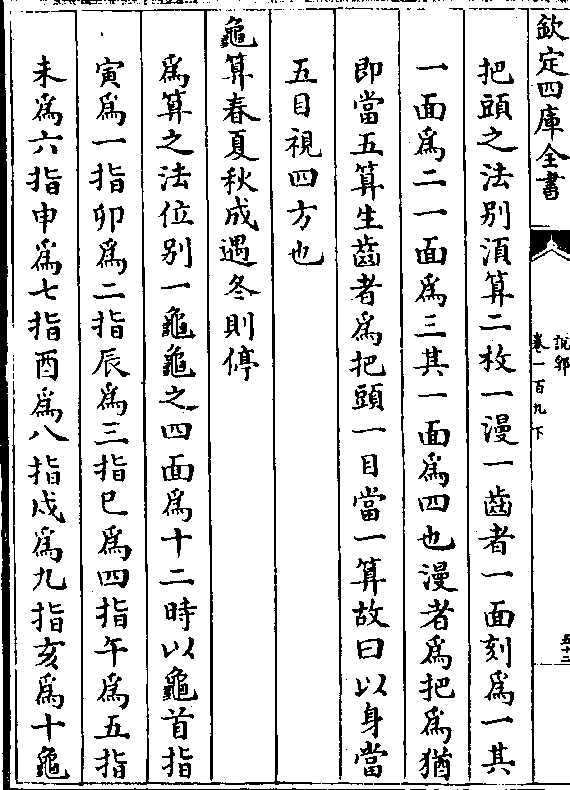 欽定四庫全書
說郛
卷一百九下
五十三
把頭之法别湏算二枚一漫一齒者一面刻為一其
一面為二一面為三其一面為四也漫者為把為猶
即當五算生齒者為把頭一目當一算故曰以身當
五目視四方也
龜算春夏秋成遇冬則停
為算之法位别一龜龜之四面為十二時以龜首指
寅為一指卯為二指辰為三指巳為四指午為五指
未為六指申為七指酉為八指戌為九指亥為十龜